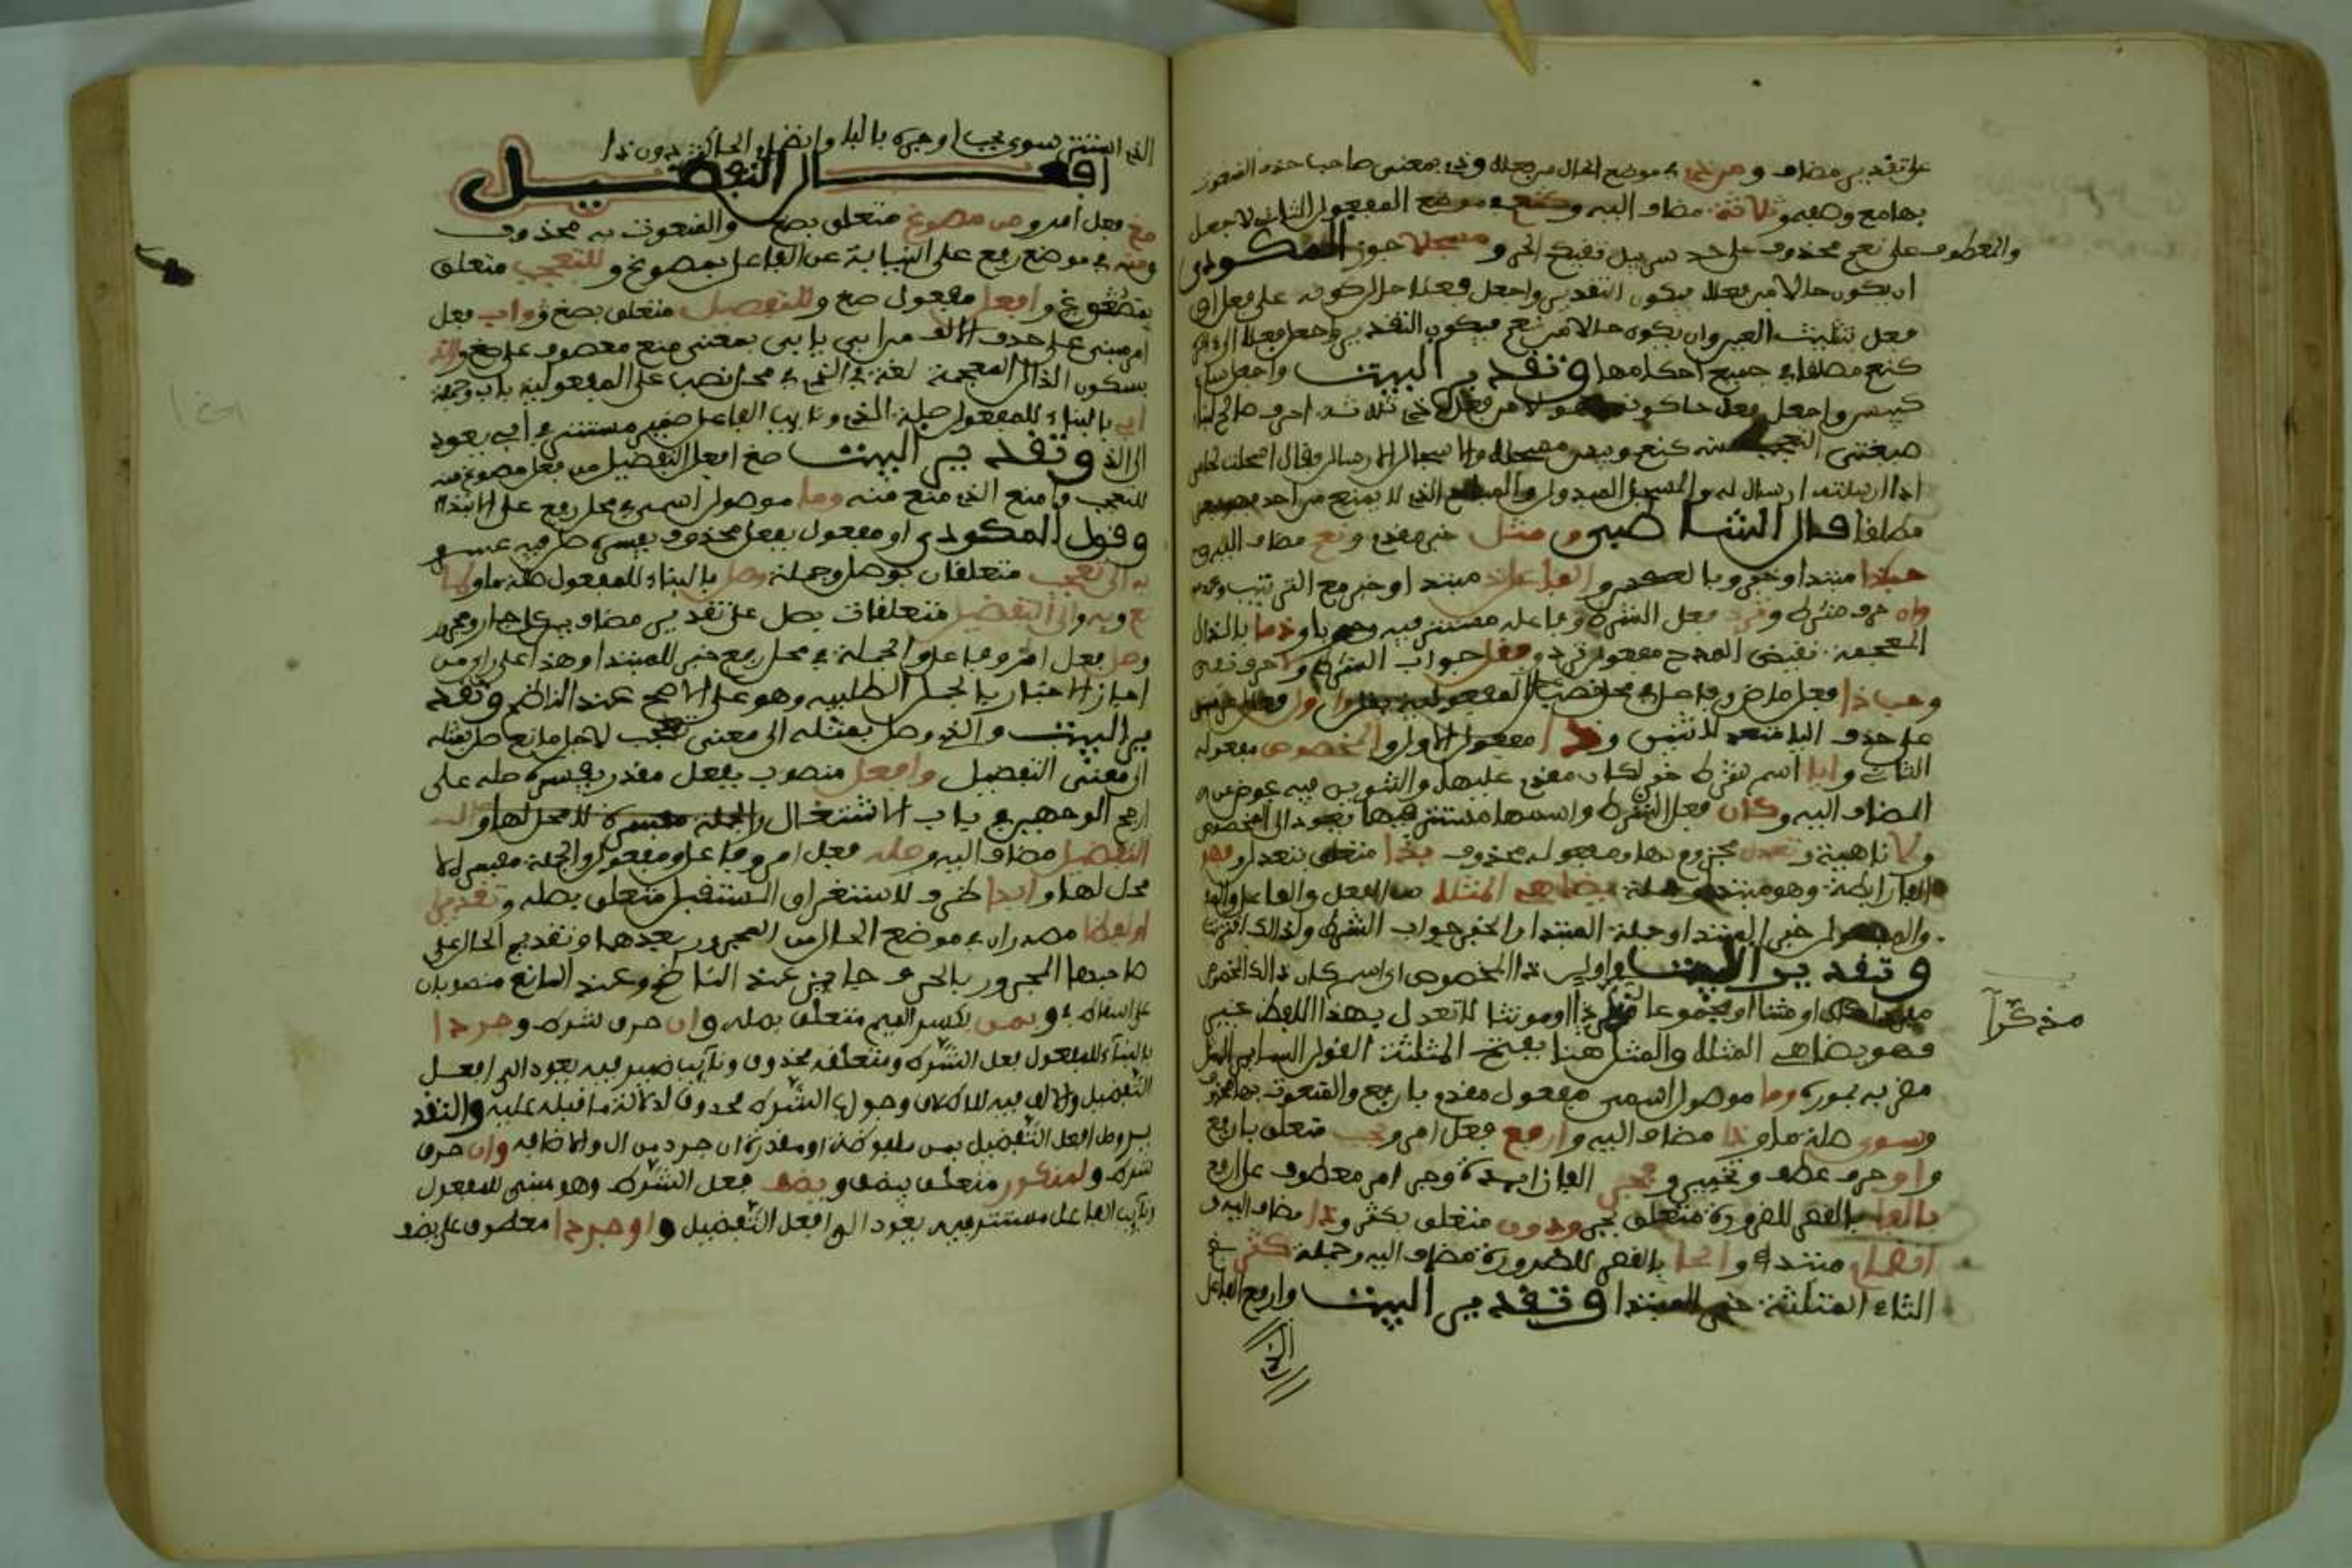 على تقدير مضاف ومن ذي في موضع الحال من فعلا وذي بمعنى صاحب حذف المنعوت
بها مع وصفه وثلاثة مضاف اليه وكنعم في موضع المفعول الثاني لاجعل
والمعطوف على نعم محذوف على حد سرابيل تقيكم الحر ومسجلا جوز المكودي
ان يكون حالا من فعلا فيكون التقدير واجعل فعلا حال كونه على فعل او
فعل تثليث العين وان يكون حالا من نعم فيكون التقدير واجعل فعلا
كنعم مطلقا في جميع احكامها وتقدير البيت واجعل ساء
كبيس واجعل فعل حال كونه من فعل ذي ثلاثة احرف صالح لبناء
صيغتي التعجب منه كنعم وبيس مسجلا والاسجال الارسال يقال اسجلت
اذا ارسلته ارسالا والمسجل المبذول والمباح الذي لا يمنع من احد
مطلقا قال الشاطبي ومثل خبر مقدم ونعم مضاف اليه و
حبذا مبتدا وخبره وبالعكس والفاعل ذا مبتدا وخبر مع الترتيب وعدمه
وان حرف شرط وترد فعل الشرط وفاعله مستتر فيه وجوبا وذما بالذال
المعجمة نقيض المدح مفعول ترد وفقل جواب الشرط ولا حرف نفي
وحب ذا فعل ماض وفاعل في محل نصب على المفعولية بقل واول فعل امر
على حذف اليا متعد لاثنين وذا مفعول الاول والمخصوص مفعوله
الثاني وايا اسم شرط خبر لكان مقدم عليها والتنوين فيه عوض عن
المضاف اليه وكان فعل الشرط واسمها مستتر فيها يعود الى المخصوص
ولا ناهية وتعدل مجزوم بها ومفعوله محذوف بذا متعلق بتعدل وفهو
الفا رابطة وهو مبتدا وجملة يضاهي المثلا من الفعل والفاعل
والمفعول خبر المبتدا وجملة المبتدا والخبر جواب الشرط ولذلك اقترنت
وتقدير البيت واول ذا المخصوص اي اسم كان ذلك المخصوص
مذكرا
او مثنا او مجموعا او مونثا لا تعدل بهذا اللفظ عن
فهو يضاهي المثلا والمثل هنا بفتح المثلثة القول الساير
مضربه بمورده وما موصول اسمي مفعول مقدم بارفع والمنعوت بها محذوف
وسوى صلة ما وذا مضاف اليه وارفع فعل امر وبحب متعلق بارفع
واو حرف عطف وتخيير وفجر الفا زايدة وجر امر معطوف على ارفع
بالبا بالقصر للضرورة متعلق بجر ودون متعلق بكثر وذا مضاف اليه و
انضمام مبتدا والحا بالقصر للضرورة مضاف اليه وجملة كثر
الثاء المثلثة خبر المبتدا وتقدير البيت وارفع الفاعل
الذي
الذي استقر سوى بحب او جره بالبا وانضمام الحا كثر دون ذا
افعل التفضيل
صغ فعل امر ومن مصوغ متعلق بصغ والمنعوت به محذوف
ومنه في موضع رفع على النيابة عن الفاعل بمصوغ وللتعجب متعلق
بمصوغ وافعل مفعول صغ وللتفضيل متعلق بصغ وواب فعل
امر مبني على حذف الالف من ابى يابى بمعنى منع معطوف على صغ والذ
بسكون الذال المعجمة لغة في الذي في محل نصب على المفعولية باب وجملة
ابي بالبناء للمفعول صلة الذي ونايب الفاعل ضمير مستتر في ابي يعود
الى الذ وتقدير البيت صغ افعل التفضيل من فعل مصوغ منه
للتعجب وامنع الذي منع منه وما موصول اسمي في محل رفع على الابتدا
وقول المكودي او مفعول بفعل محذوف يفسره صل فيه عسر و
به الى تعجب متعلقان بوصل وجملة وصل بالبناء للمفعول صلة ما ولما
نع وبه والى التفضيل متعلقات بصل على تقدير مضاف بين كل جار ومجرور
وصل فعل امر وفاعل والجملة في محل رفع خبر للمبتدا وهذا على راي من
اجاز الاخبار بالجمل الطلبيه وهو على الاصح عند الناظم وتقد
ير البيت والذي وصل بمثله الى معنى تعجب لاجل مانع صل بمثله
الى معنى التفضيل وافعل منصوب بفعل مقدر يفسره صله على
ارجح الوجهين في باب الاشتغال والجملة مفسرة لا محل لها و
التفضيل مضاف اليه وصله فعل امر وفاعل ومفعول والجملة مفسرة لا
محل لها وابدا ظرف لاستغراق المستقبل متعلق بصله وتقديرا
اولفظا مصدران في موضع الحال من المجرور بعدهما وتقديم الحال على
صاحبها المجرور بالحرف جايز عند الناظم وعند المانع منصوبان
على اسقاط في وبمن بكسر الميم متعلق بصله وان حرف شرط وجردا
بالبناء للمفعول فعل الشرط ومتعلقه محذوف ونايب ضمير فيه يعود الى افعل
التفضيل والالف فيه للاطلاق وجواب الشرط محذوف لدلالة ما قبله عليه والتقد
ير وصل افعل التفضيل بمن ملفوظة او مقدرة ان جرد من ال والاضافة وان حرف
شرط ولمنكور متعلق بيضف ويضف فعل الشرط وهو مبني للمفعول
ونايب الفاعل مستتر فيه يعود الى افعل التفضيل واو جردا معطوف على يضف